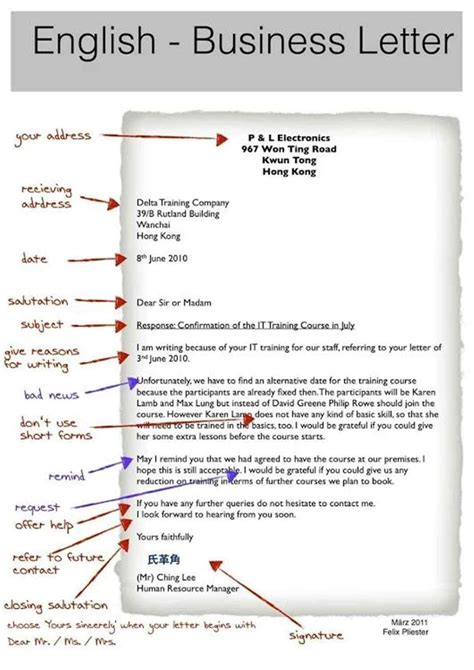 English - Business Letter
your address
P & L Electronics
967 Won Ting Road
Kwun Tong
Hong Kong
recieving
adrdress
Delta Training Company
39/B Rutland Building
Wanchai
Hong Kong
date
8th June 2010
salutation
Dear Sir or Madam
subject
Response: Confirmation of the IT Training Course in July
give reasons
for writing
I am writing because of your IT training for our staff, referring to your letter of
3rd June 2010.
bad news
Unfortunately, we have to find an alternative date for the training course
because the participants are already fixed then. The participants will be Karen
Lamb and Max Lung but instead of David Greene Philip Rowe should join the
course. However Karen Lamb does not have any kind of basic skill, so that she
will need to be trained in the basics, too. I would be grateful if you could give
her some extra lessons before the course starts.
don't use
short forms
remind
May I remind you that we had agreed to have the course at our premises. I
hope this is still acceptable. I would be grateful if you could give us any
reduction on training in terms of further courses we plan to book.
request
offer help
If you have any further queries do not hesitate to contact me.
I look forward to hearing from you soon.
refer to future
contact
Yours faithfully
氏革角
(Mr) Ching Lee
Human Resource Manager
closing salutation
signature
choose 'Yours sincerely' when your letter begins with
Dear Mr. / Ms. / Mrs.
März 2011
Felix Pliester